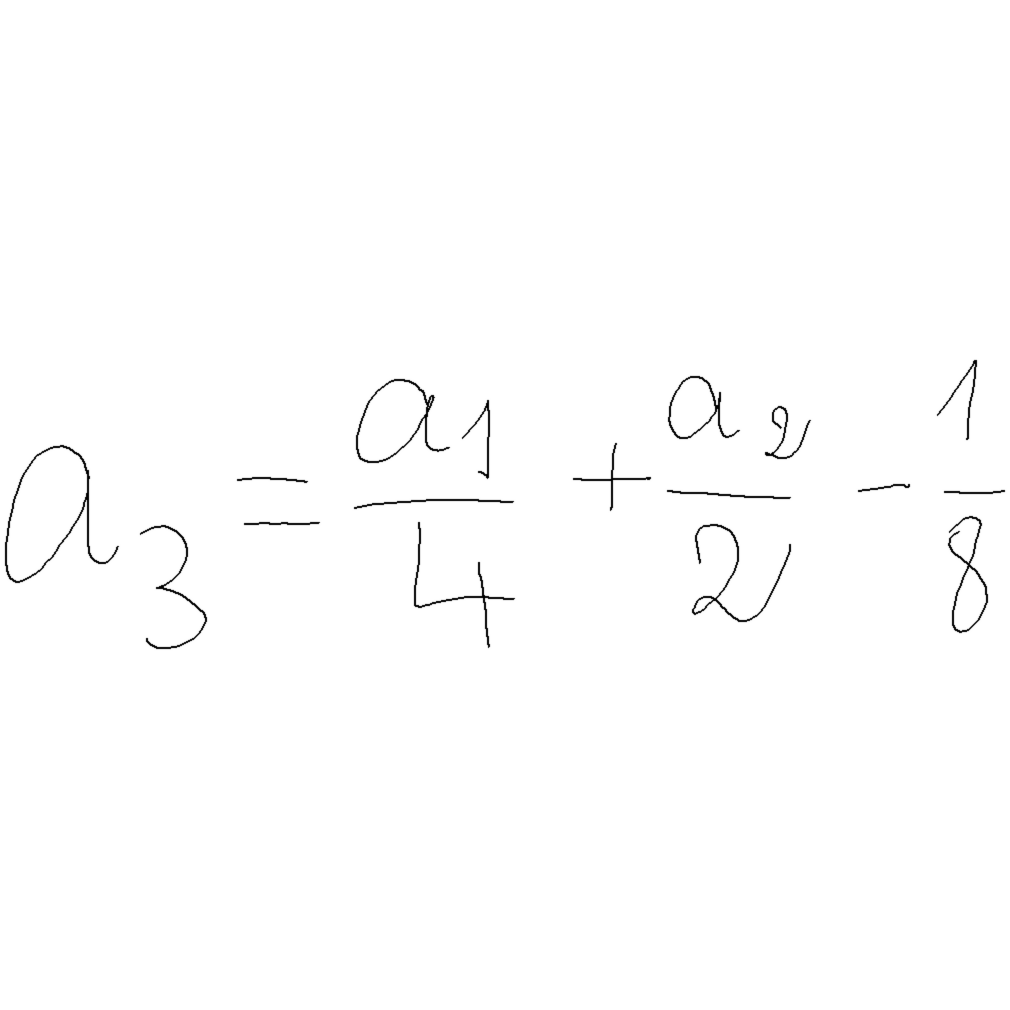 a_3 = \frac{a_1}{4} + \frac{a_2}{2} - \frac{1}{8}